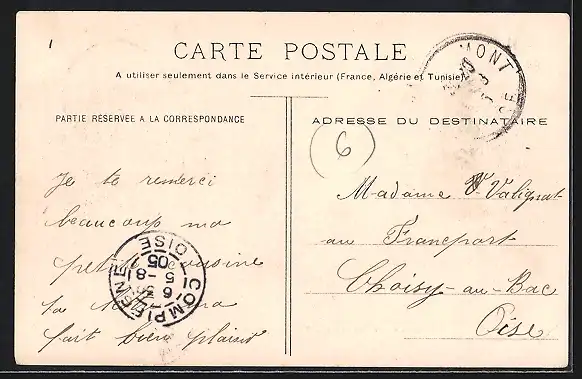 CARTE POSTALE
A utiliser seulement dans le Service intérieur (France, Algérie et Tunisie)
PARTIE RÉSERVÉE A LA CORRESPONDANCE
ADRESSE DU DESTINATAIRE
6
MONT
Je te remerci
beaucoup ma
petite cousine
ta
fait bien plaisir
COMPIEGNE
OISE
6
5
05
Madame V Valignat
au Francport
Choisy-au-Bac
Oise